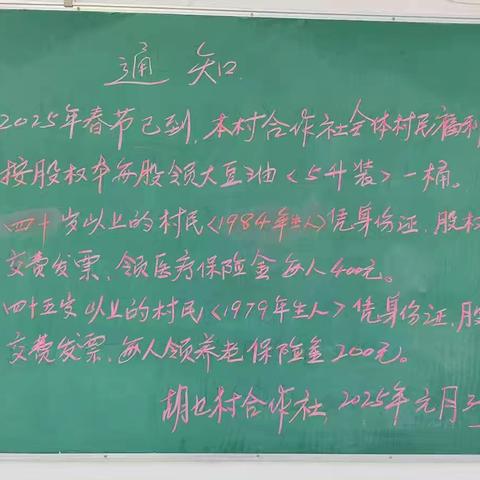 通知
2025年春节已到,本村合作社全体村民福利
按股权本每股领大豆油<5升装>一桶。
四十岁以上的村民<1984年生人>凭身份证、股权
交费发票、领医疗保险金每人400元。
四十五岁以上的村民<1979年生人>凭身份证、股
交费发票、每人领养老保险金200元。
胡 村合作社,2025年元月